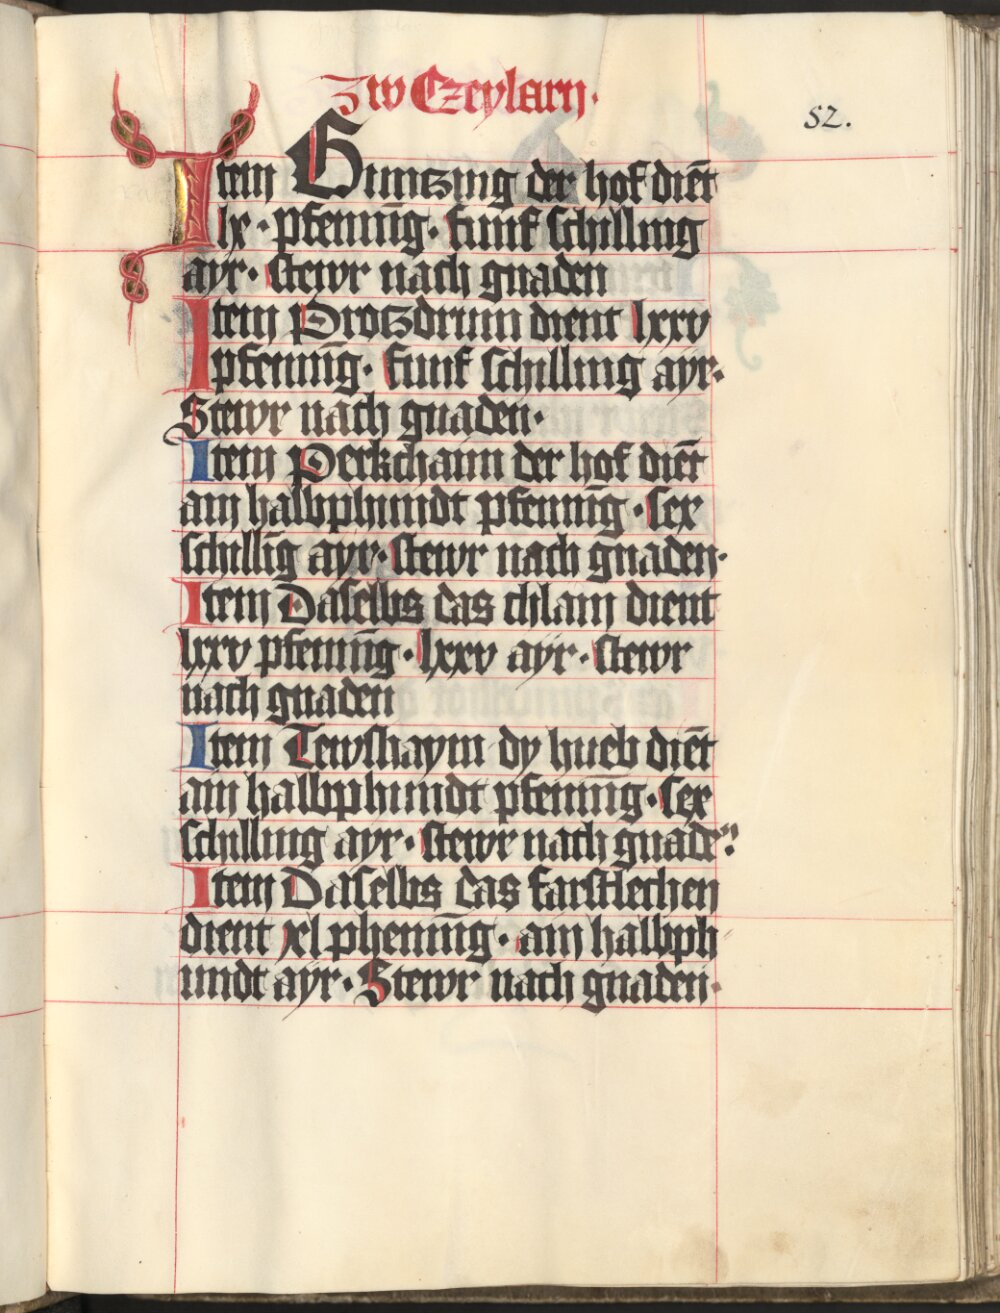 Zw Czeylarn·
52.
Item Guntzing der hof diēt
lx · pfenning · funf schilling
ayr · stewr nach gnaden
Item Protzdrum dient lxxv
pfening · funf schilling ayr·
Stewr nach gnaden·
Item Perkchaim der hof diēt
ain halbphundt pfenning · sex
schillīg ayr · stewr nach gnaden·
Item Daselbs das chlain dient
lxxv pfening · lxxv ayr · stewr
nach gnaden
Item Tewshaym dy hueb diēt
ain halbphundt pfening · sex
schilling ayr · stewr nach gnadē
Item Daselbs das farstlechen
dient xl phening · ain halbph
undt ayr · Stewr nach gnaden·